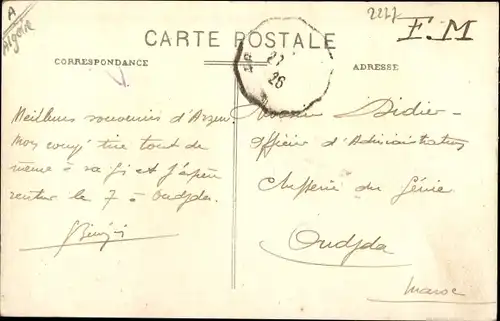 A
Algérie
2277
E.M
CARTE POSTALE
27
26
CORRESPONDANCE
ADRESSE
Meilleurs souvenirs d'Arzew
Mon congé tire tout de
même à sa fin et j'espère
rentrer le 7 à Oudjda.
Didier
Officier d'Administration
Chefferie du Génie
Oudjda
Maroc